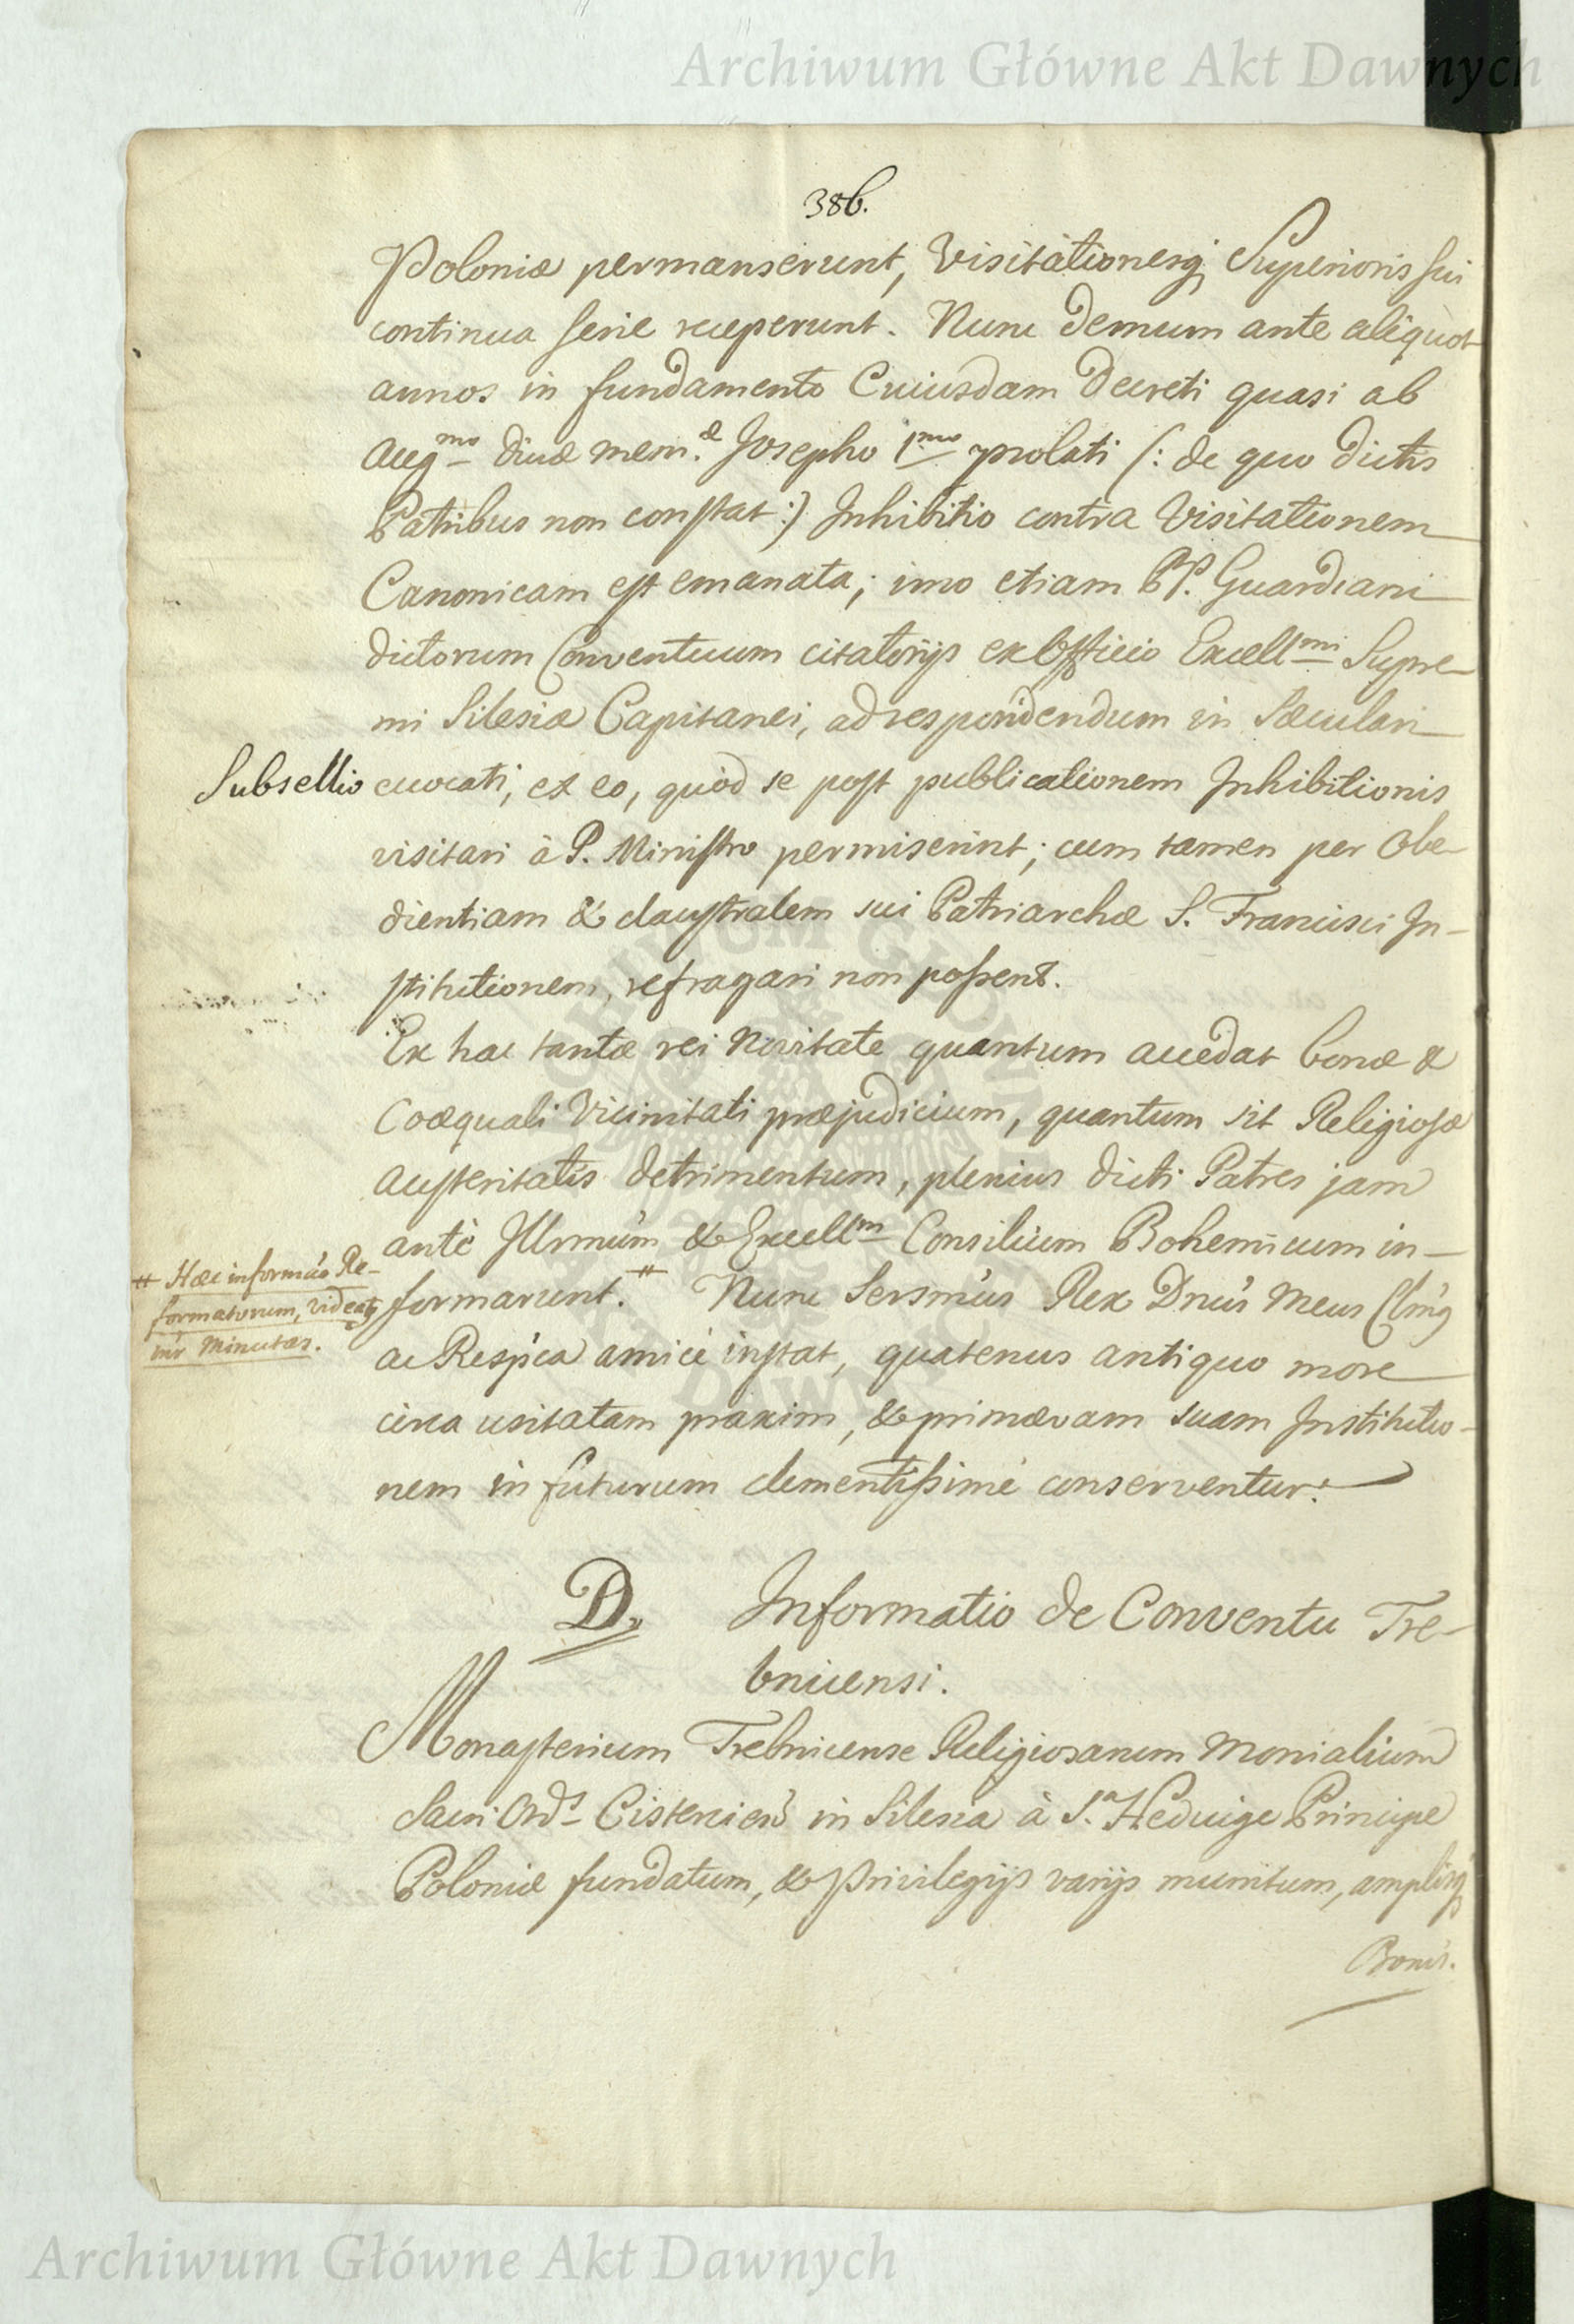 Archiwum Główne Akt Dawnych
386.
Poloniæ permanserunt, Visitationesq; Superioris sui
continua serie receperunt. Nunc demum ante aliquot
annos in fundamento Cuiusdam Decreti quasi ab
Augmo Divæ mem:æ Josepho 1mo prolati (: de quo dictis
Patribus non constat :) Inhibitio contra Visitationem
Canonicam est emanata; imo etiam PP. Guardiani
dictorum Conventuum citatorijs ex Officio Excellmi Supre-
mi Silesiæ Capitanei, ad respondendum in Sæculari
Subsellio evocati, ex eo, quòd se post publicationem Inhibitionis
visitari à P. Ministro permiserint; cum tamen per Obe-
dientiam & claustralem sui Patriarchæ S. Francisci In-
stitutionem, refragari non possent.
Ex hac tantæ rei Novitate quantum accedat bonæ &
Coæquali Vicinitati præjudicium, quantum sit Religiosæ
austeritatis detrimentum, plenius dicti Patres jam
antè Illrmum & Excellm Consilium Bohemicum in-
formarunt. # Nunc Sersmus Rex Dnus Meus Clmg
# Hæc informao Re-
formatorum, videatq
inr Minutas.
ac Respca amicè instat, quatenus antiquo more
circa usitatam praxim, & primævam suam Institutio-
nem in futurum clementissimè conserventur.
D. Informatio de Conventu Tre-
bnicensi.
Monasterium Trebnicense Religiosarum Monialium
Sacri Ords Cistercien in Silesia à Sa Heduige Principe
Poloniæ fundatum, & Privilegijs varijs munitum, amplisq;
Bonis.
Archiwum Główne Akt Dawnych